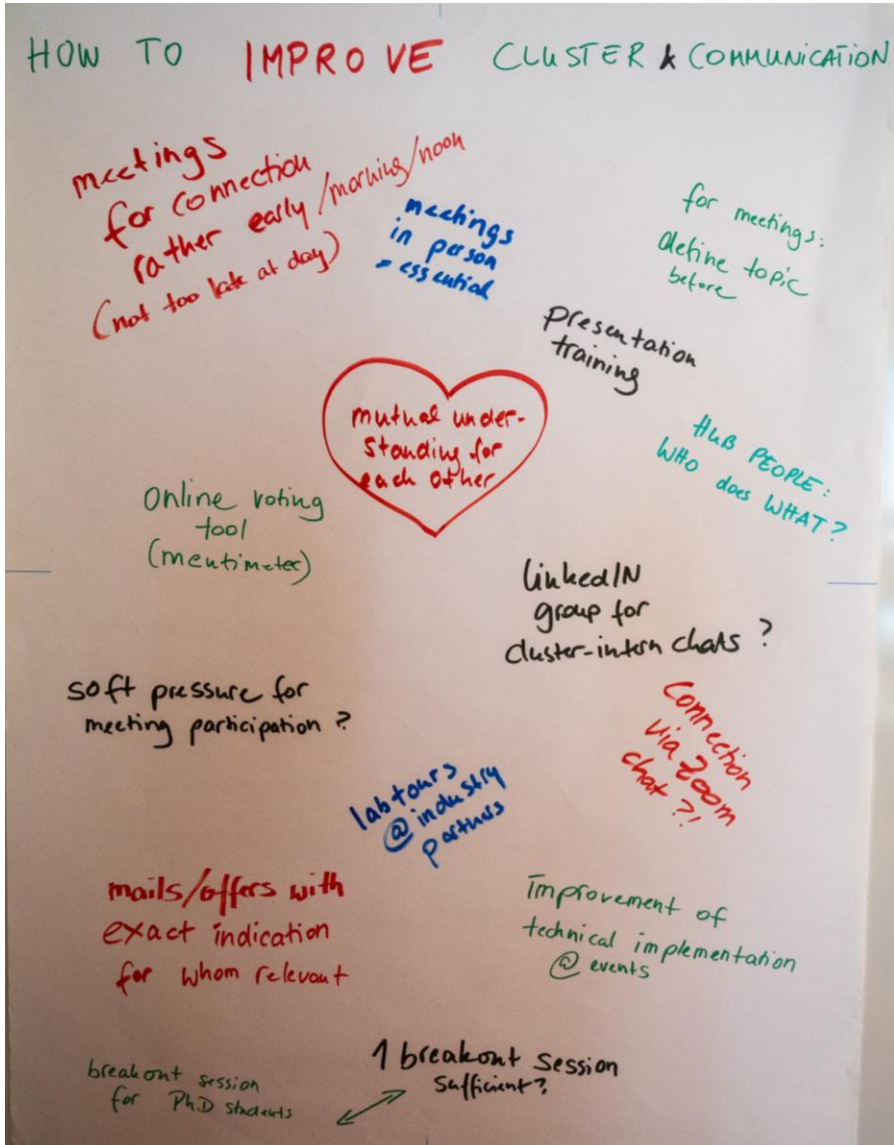 HOW TO IMPROVE CLUSTER & COMMUNICATION
meetings
for connection
rather early/morning/noon
(not too late at day)
meetings
in person
= essential
for meetings:
define topic
before
presentation
training
mutual under-
standing for
each other
HUB PEOPLE:
WHO does WHAT?
Online voting
tool
(mentimeter)
linkedIN
group for
cluster-intern chats ?
soft pressure for
meeting participation ?
Connection
via Zoom
chat ?!
labtours
@industry
partners
mails/offers with
exact indication
for whom relevant
Improvement of
technical implementation
@ events
breakout session
for PhD students
1 breakout session
sufficient?